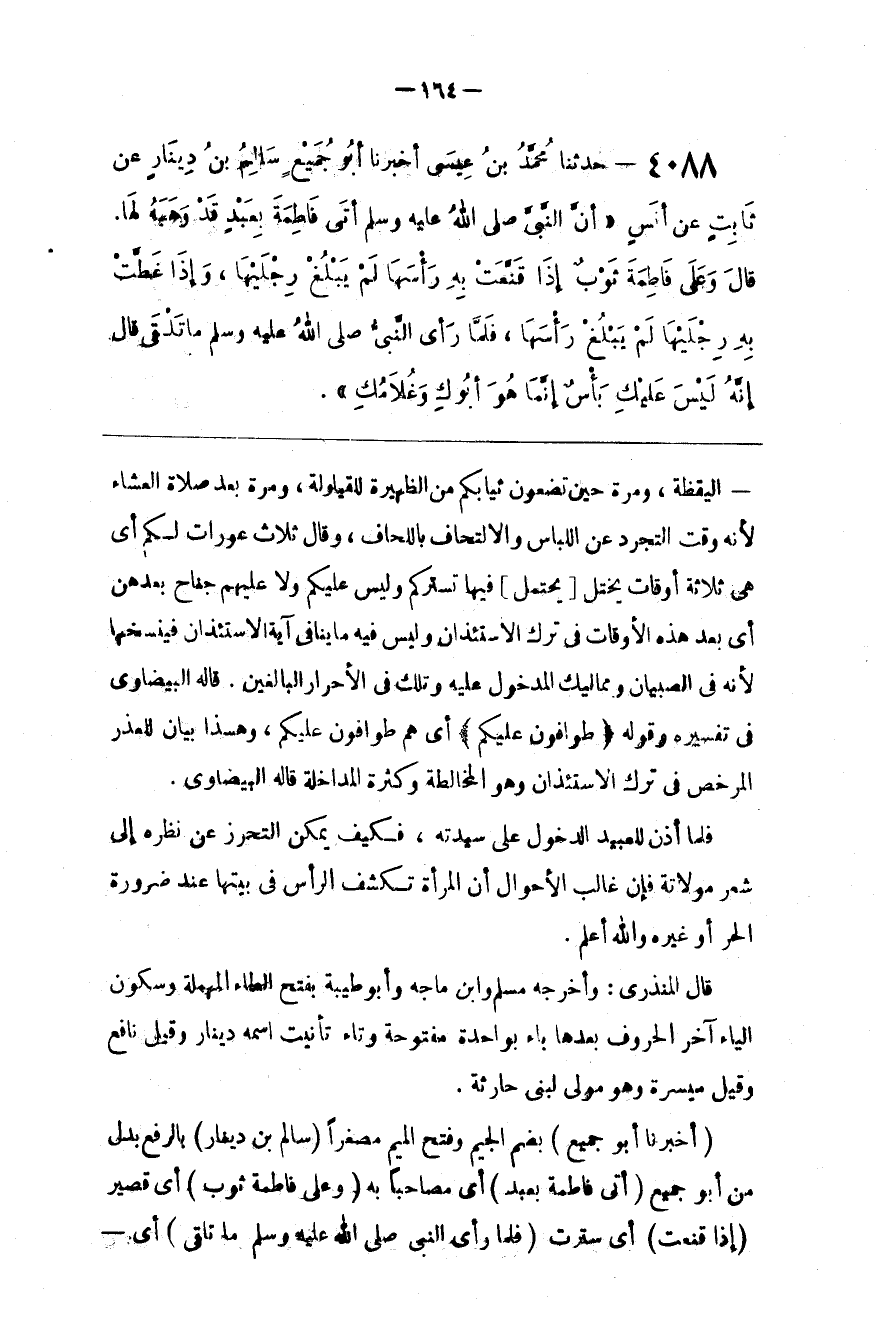 — ١٦٤ —
٤٠٨٨ — حدثنا مُحَمَّدُ بنُ عِيسَى أخبرنا أَبُو جُمَيْعٍ سَالِمُ بنُ دِينَارٍ عن
ثَابِتٍ عن أَنَسٍ « أنَّ النَّبيَّ صلى اللهُ عليه وسلم أتَى فَاطِمَةَ بِعَبْدٍ قَدْ وَهَبَهُ لَهَا.
قالَ وَعَلَى فَاطِمَةَ ثَوْبٌ إذَا قَنَّعَتْ بِهِ رَأْسَهَا لَمْ يَبْلُغْ رِجْلَيْهَا ، وَإذَا غَطَّتْ
بِهِ رِجْلَيْهَا لَمْ يَبْلُغْ رَأْسَهَا ، فَلمَّا رَأى النَّبيُّ صلى اللهُ عليه وسلم ما تَلْقَى قال
إنَّهُ لَيْسَ عَلَيْكِ بَأْسٌ إنَّمَا هُوَ أبُوكِ وَغُلَامُكِ » .
— اليقظة ، ومرة حين تضعون ثيابكم من الظهيرة للقيلولة ، ومرة بعد صلاة العشاء
لأنه وقت التجرد عن اللباس والالتحاف باللحاف ، وقال ثلاث عورات لكم أى
هى ثلاثة أوقات يختل [ يحتمل ] فيها تستركم وليس عليكم ولا عليهم جناح بعدهن
أى بعد هذه الأوقات فى ترك الاستئذان وليس فيه ما ينافى آية الاستئذان فينسخها
لأنه فى الصبيان ومماليك المدخول عليه وتلك فى الأحرار البالغين . قاله البيضاوى
فى تفسيره وقوله ﴿ طوافون عليكم ﴾ أى هم طوافون عليكم ، وهذا بيان للعذر
المرخص فى ترك الاستئذان وهو المخالطة وكثرة المداخلة قاله البيضاوى .
فلما أذن للعبيد الدخول على سيدته ، فكيف يمكن التحرز عن نظره إلى
شعر مولاتة فإن غالب الأحوال أن المرأة تكشف الرأس فى بيتها عند ضرورة
الحر أو غيره والله أعلم .
قال المنذرى : وأخرجه مسلم وابن ماجه وأبو طيبة بفتح الطاء المهملة وسكون
الياء آخر الحروف بعدها باء بواحدة مفتوحة وتاء تأنيث اسمه دينار وقيل نافع
وقيل ميسرة وهو مولى لبنى حارثة .
( أخبرنا أبو جميع ) بضم الجيم وفتح الميم مصغراً (سالم بن دينار) بالرفع بدل
من أبو جميع ( أتى فاطمة بعبد ) أى مصاحباً به ( وعلى فاطمة ثوب ) أى قصير
(إذا قنعت) أى سترت ( فلما رأى النبى صلى الله عليه وسلم ما تلقى ) أى —